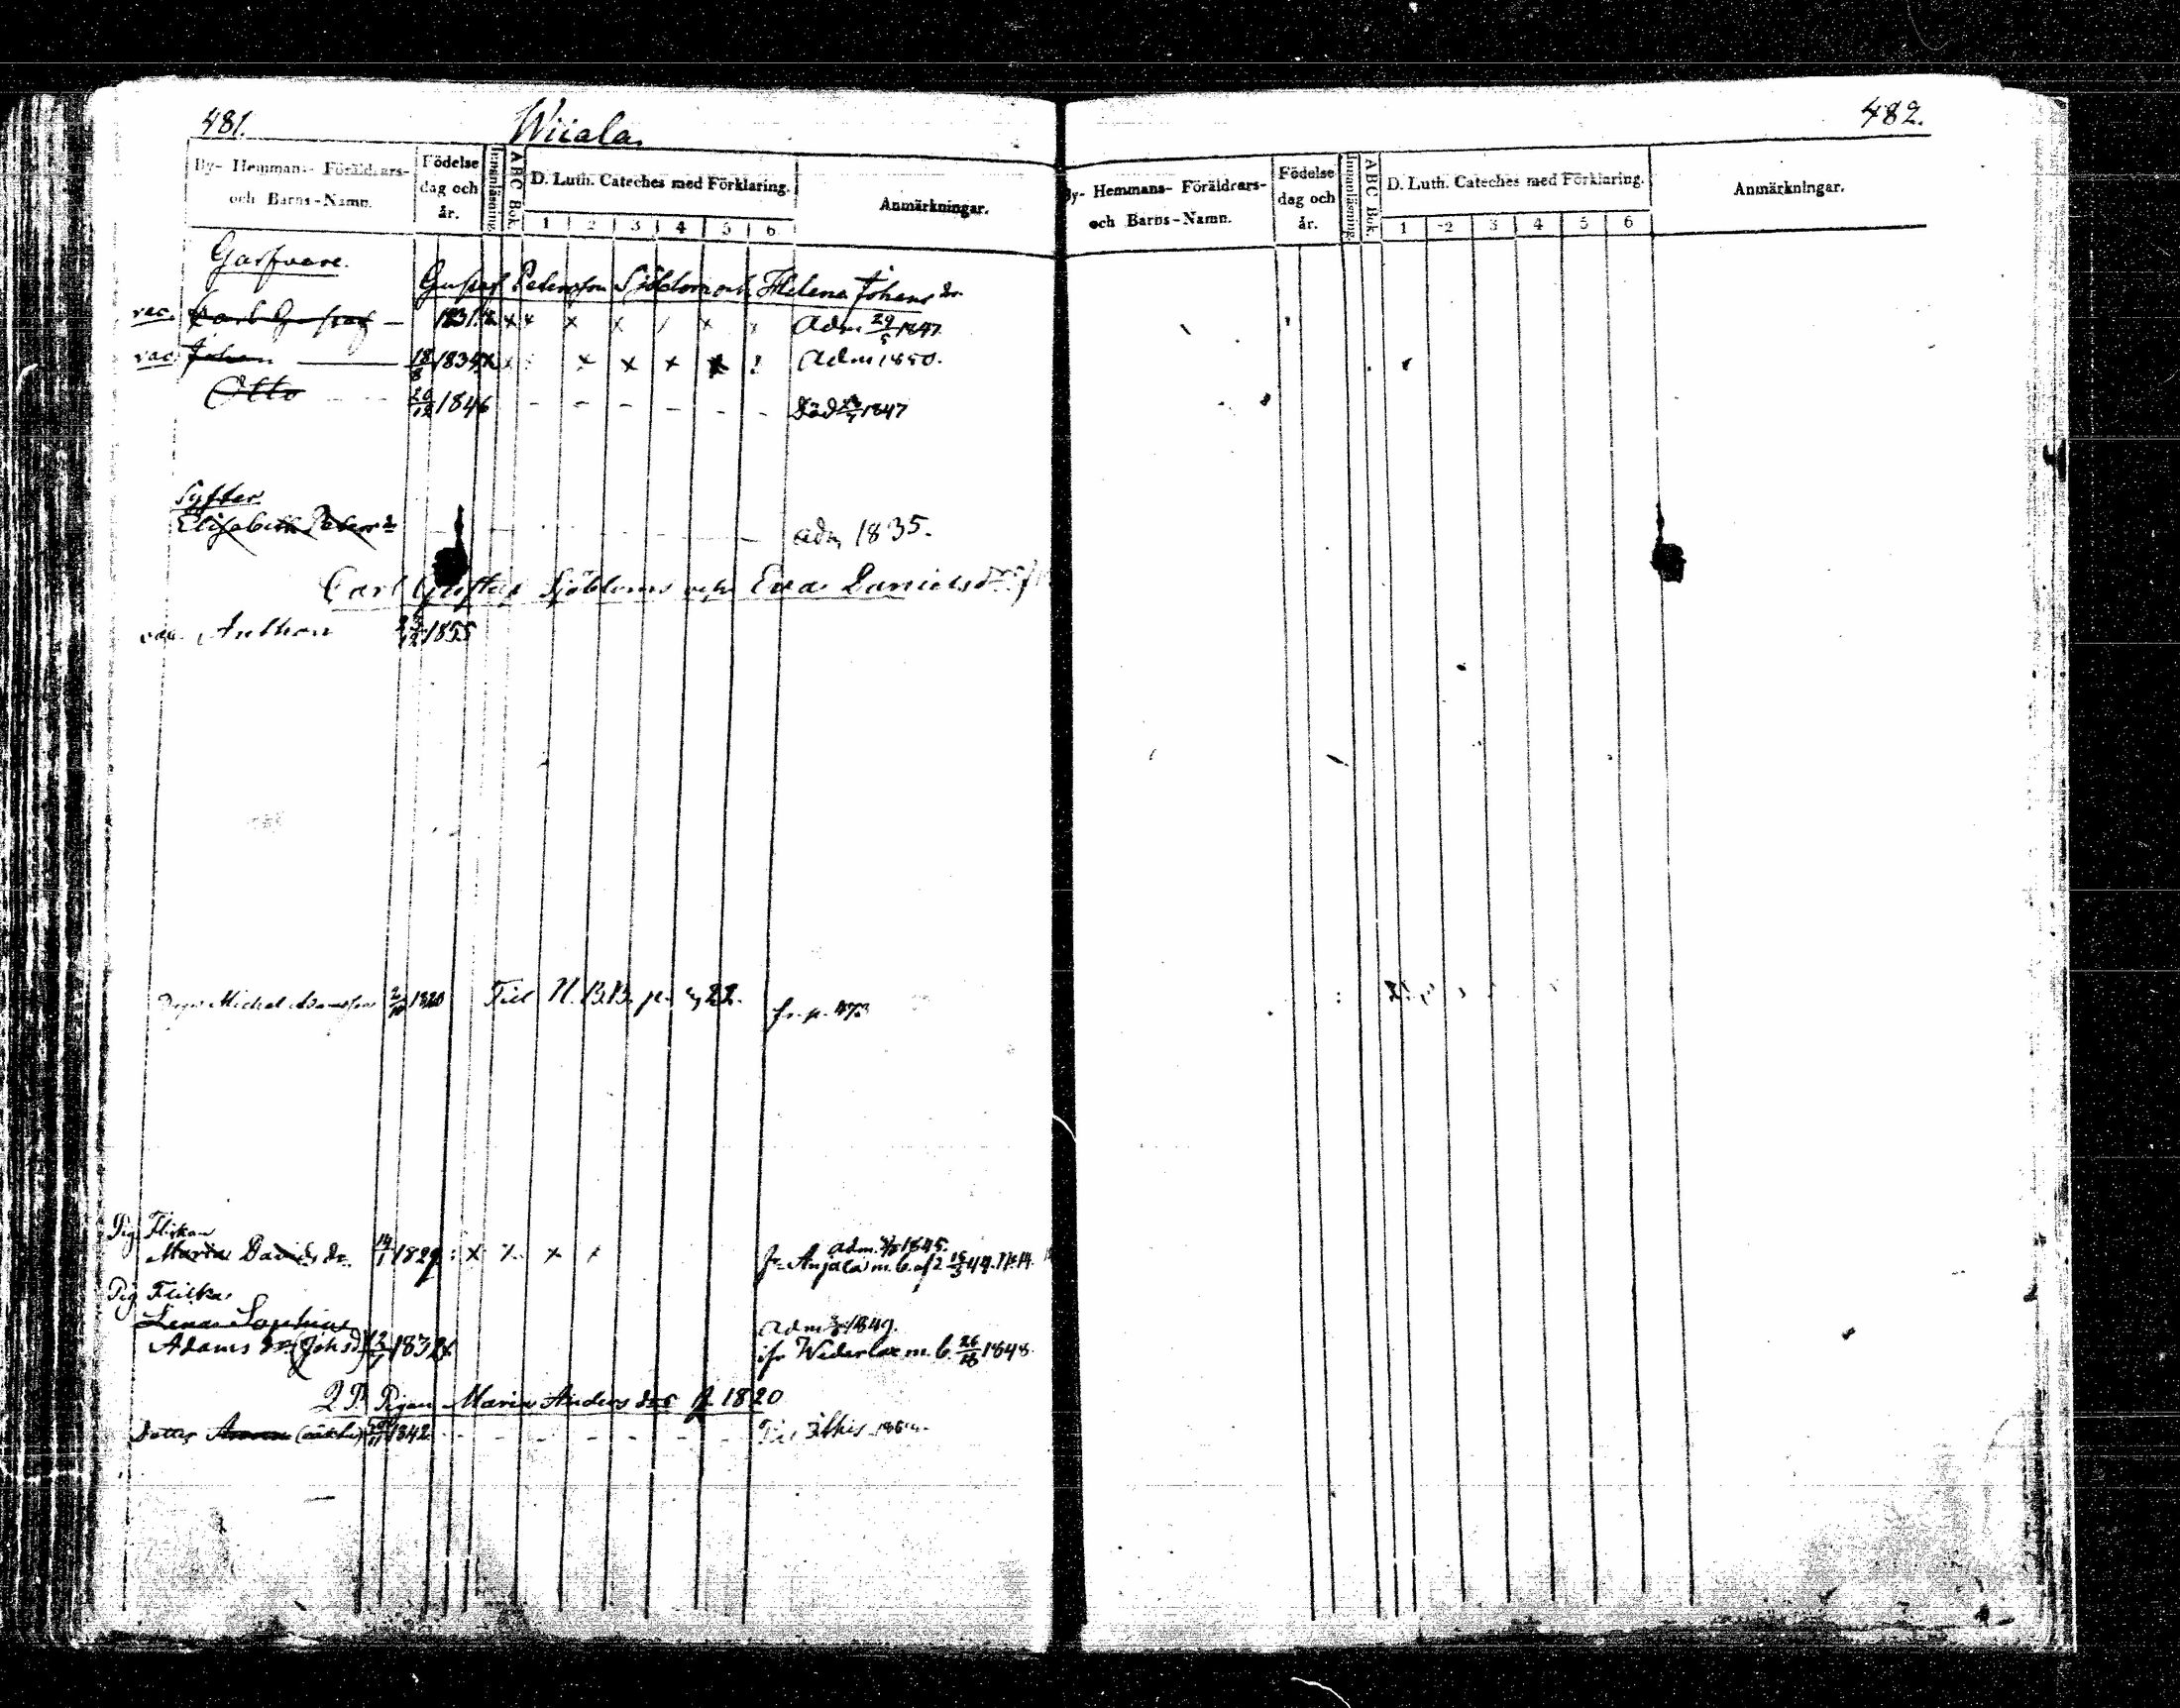 481.
Wiiala.
By- Hemmans- Föräldrars- och Barns-Namn.
Födelse dag och år.
Innanläsning.
ABC Bok.
D. Luth. Cateches med Förklaring.
1 2 3 4 5 6
Anmärkningar.
Garfvare.
Gustaf Petersson Sjöblom och Helena Johans dr
vac. Carl Gustaf — 1831 x x x x x x Adm 29/5 1847
vac. Johan — 18/8 1834 x x x x x x Adm 1850.
Otto - - - 26/12 1846 - - - - - - Död 1847
Syster
Elisabeth Peters dr adm 1835.
Carl Gustaf Sjöbloms och Eva Daniels dr
vac. Anthon 1855
Michel Adamsson 1820 Till N.B.B. p. 22. fr. p. 473
Pig Flickan
Maria Davids dr. 14/1 1829 x x adm. 1845.
fr Anjala m. b. af 2 15/3 44.
Pig Flicka
Lena Sophia adm 1849.
Adams dr (Johs d) 12/1 1832 ifr Wederlax m. b. 26/18 1848.
Pigan Maria Anders dr f. 1820
Dotter 1842 - - - - - - -
482.
By- Hemmans- Föräldrars- och Barns-Namn.
Födelse dag och år.
Innanläsning.
ABC Bok.
D. Luth. Cateches med Förklaring.
1 2 3 4 5 6
Anmärkningar.